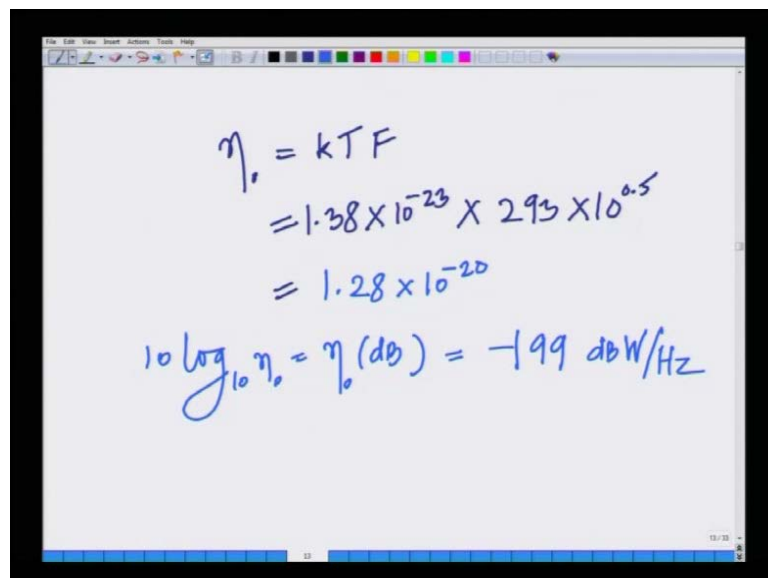 File Edit View Insert Actions Tools Help
η₀ = kTF
= 1.38 × 10⁻²³ × 293 × 10⁰·⁵
= 1.28 × 10⁻²⁰
10 log₁₀ η₀ = η₀ (dB) = -199 dBW/Hz
13/33
13